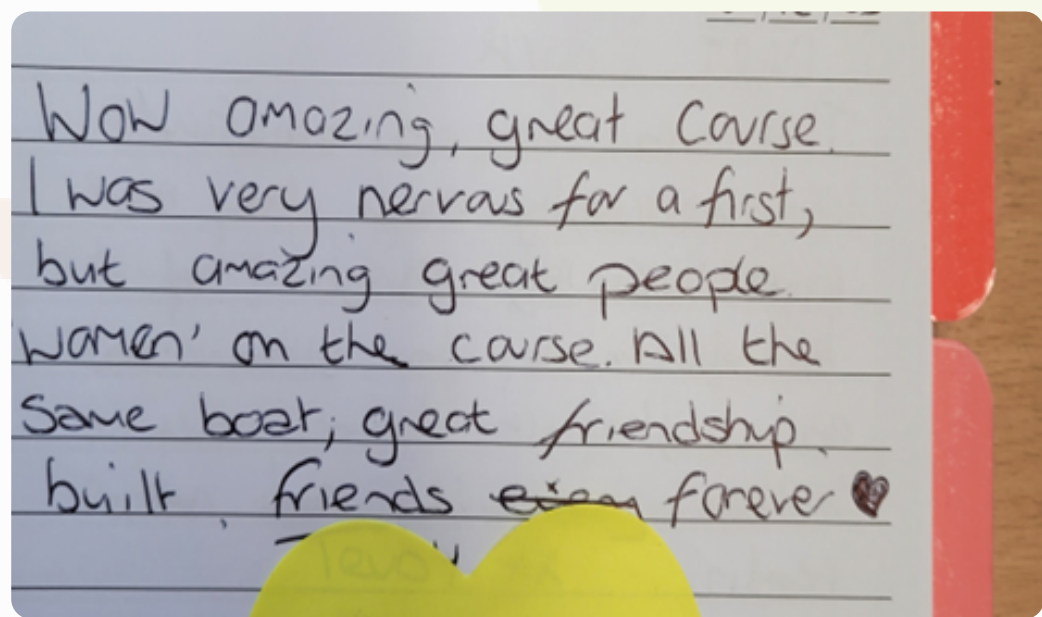 Wow amazing, great course.
I was very nervous for a first,
but amazing great people.
'women' on the course. All the
same boat; great friendship.
built, friends forever ♥